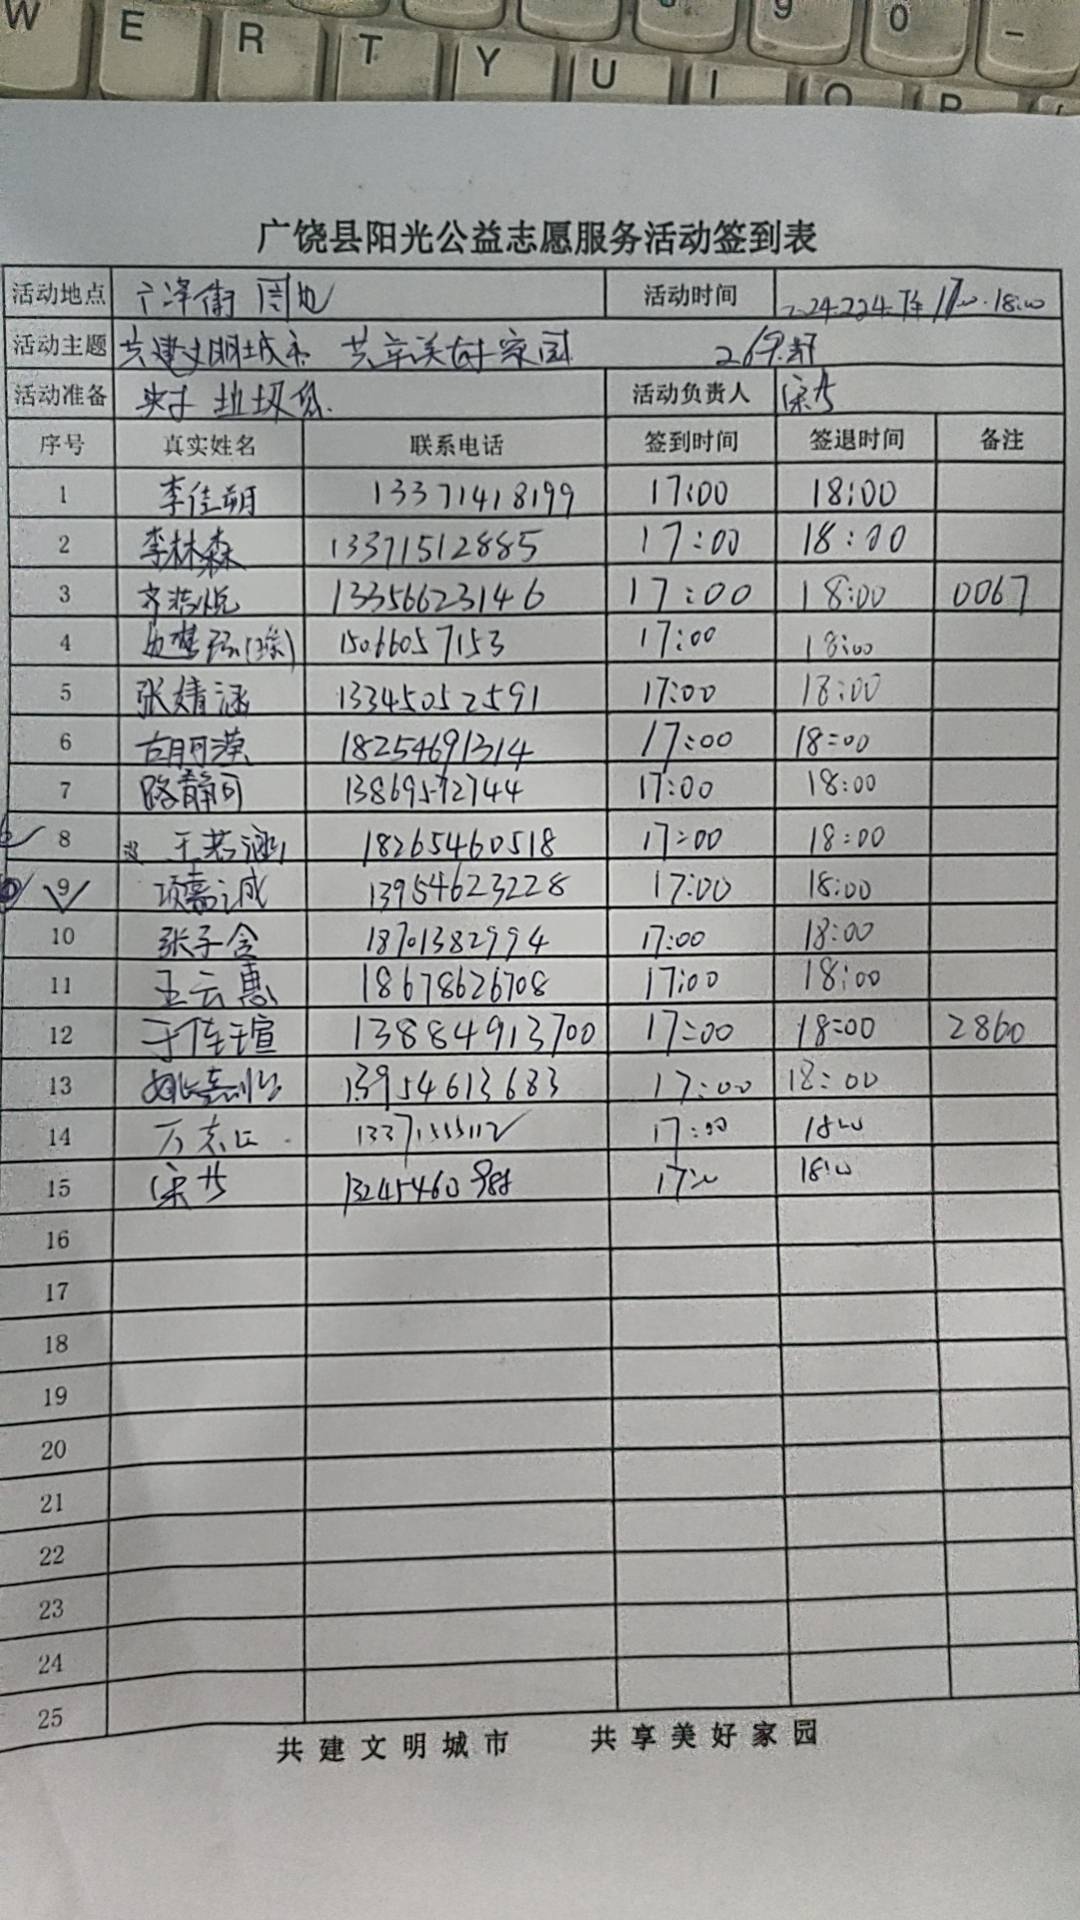 W E R T Y U I O P
9 0 -
广饶县阳光公益志愿服务活动签到表
活动地点 广泽街 周边 活动时间 17:00-18:00
活动主题 共建文明城市 共享美好家园
活动准备 夹子 垃圾袋 活动负责人
序号 真实姓名 联系电话 签到时间 签退时间 备注
1 李佳朔 13371418199 17:00 18:00
2 李林森 13371512885 17:00 18:00
3 齐浩悦 13356623146 17:00 18:00 0067
4 15066057153 17:00 18:00
5 张婧涵 13345052591 17:00 18:00
6 胡可滢 18254691314 17:00 18:00
7 路静可 13869572744 17:00 18:00
8 王若涵 18265460518 17:00 18:00
9 项嘉诚 13954623228 17:00 18:00
10 张子含 18701382994 17:00 18:00
11 王云惠 18678626708 17:00 18:00
12 于佳瑄 13884913700 17:00 18:00 2860
13 13954613683 17:00 18:00
14 17:00 18:00
15 17:00 18:00
16
17
18
19
20
21
22
23
24
25
共建文明城市 共享美好家园